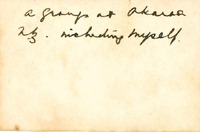 a group at Akaroa
NZ. including myself.